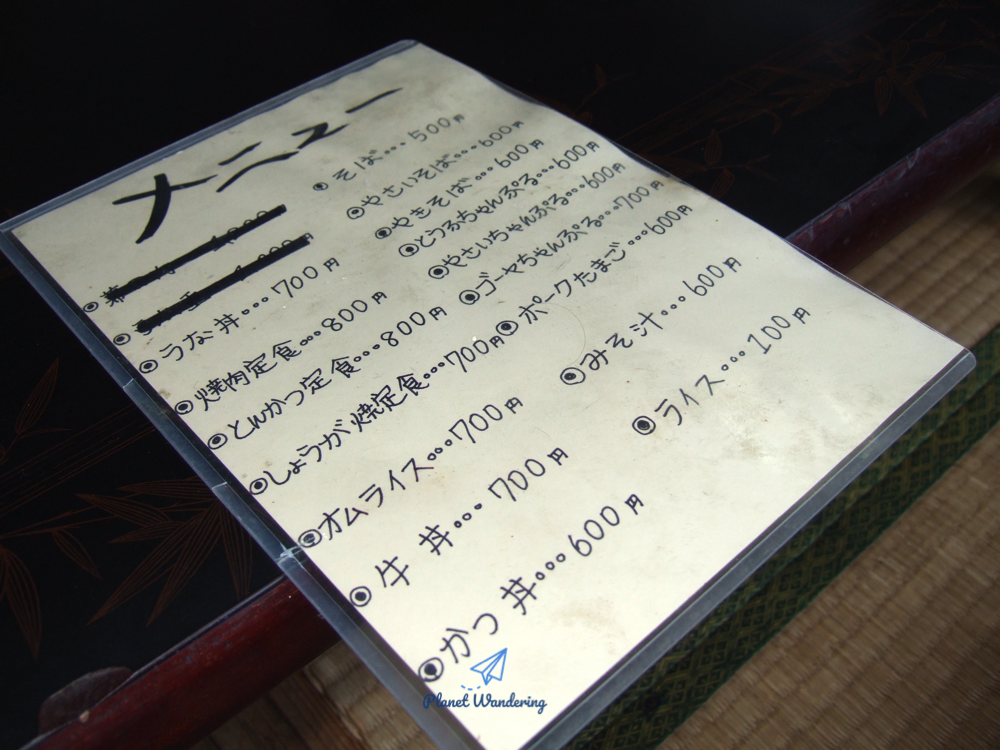 メニュー
◉うな丼…700円
◉焼肉定食…800円
◉とんかつ定食…800円
◉しょうが焼定食…700円
◉オムライス…700円
◉牛丼…700円
◉かつ丼…600円
◉そば…500円
◉やさいそば…600円
◉やきそば…600円
◉とうふちゃんぷる…600円
◉やさいちゃんぷる…600円
◉ゴーヤちゃんぷる…700円
◉ポークたまご…600円
◉みそ汁…600円
◉ライス…100円
Planet Wandering